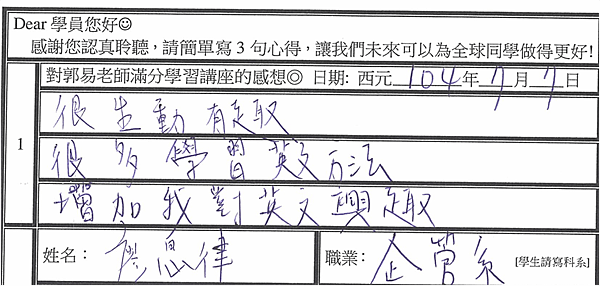 Dear 學員您好☺
感謝您認真聆聽，請簡單寫 3 句心得，讓我們未來可以為全球同學做得更好!
對郭易老師滿分學習講座的感想◎ 日期: 西元 104 年 7 月 7 日
1
很生動有趣
很多學習英文方法
增加我對英文興趣
姓名： 廖思律 職業： 企管系 [學生請寫科系]